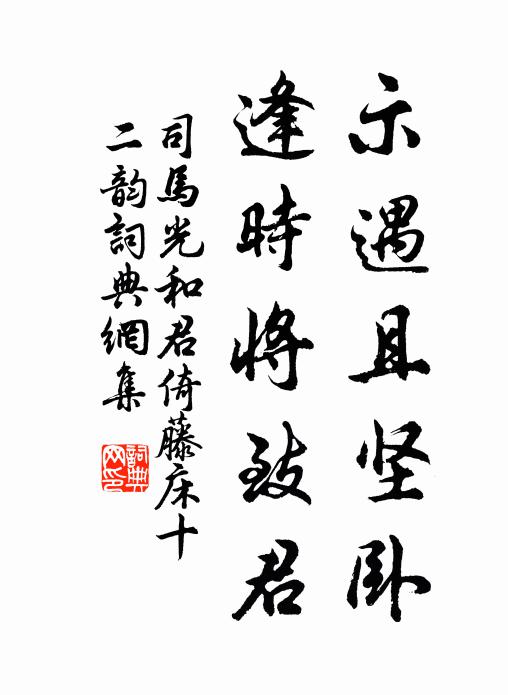 示遇且坚卧
逢時将致君
司馬光和君倚藤床十
二韵詞典網集
詞典网印